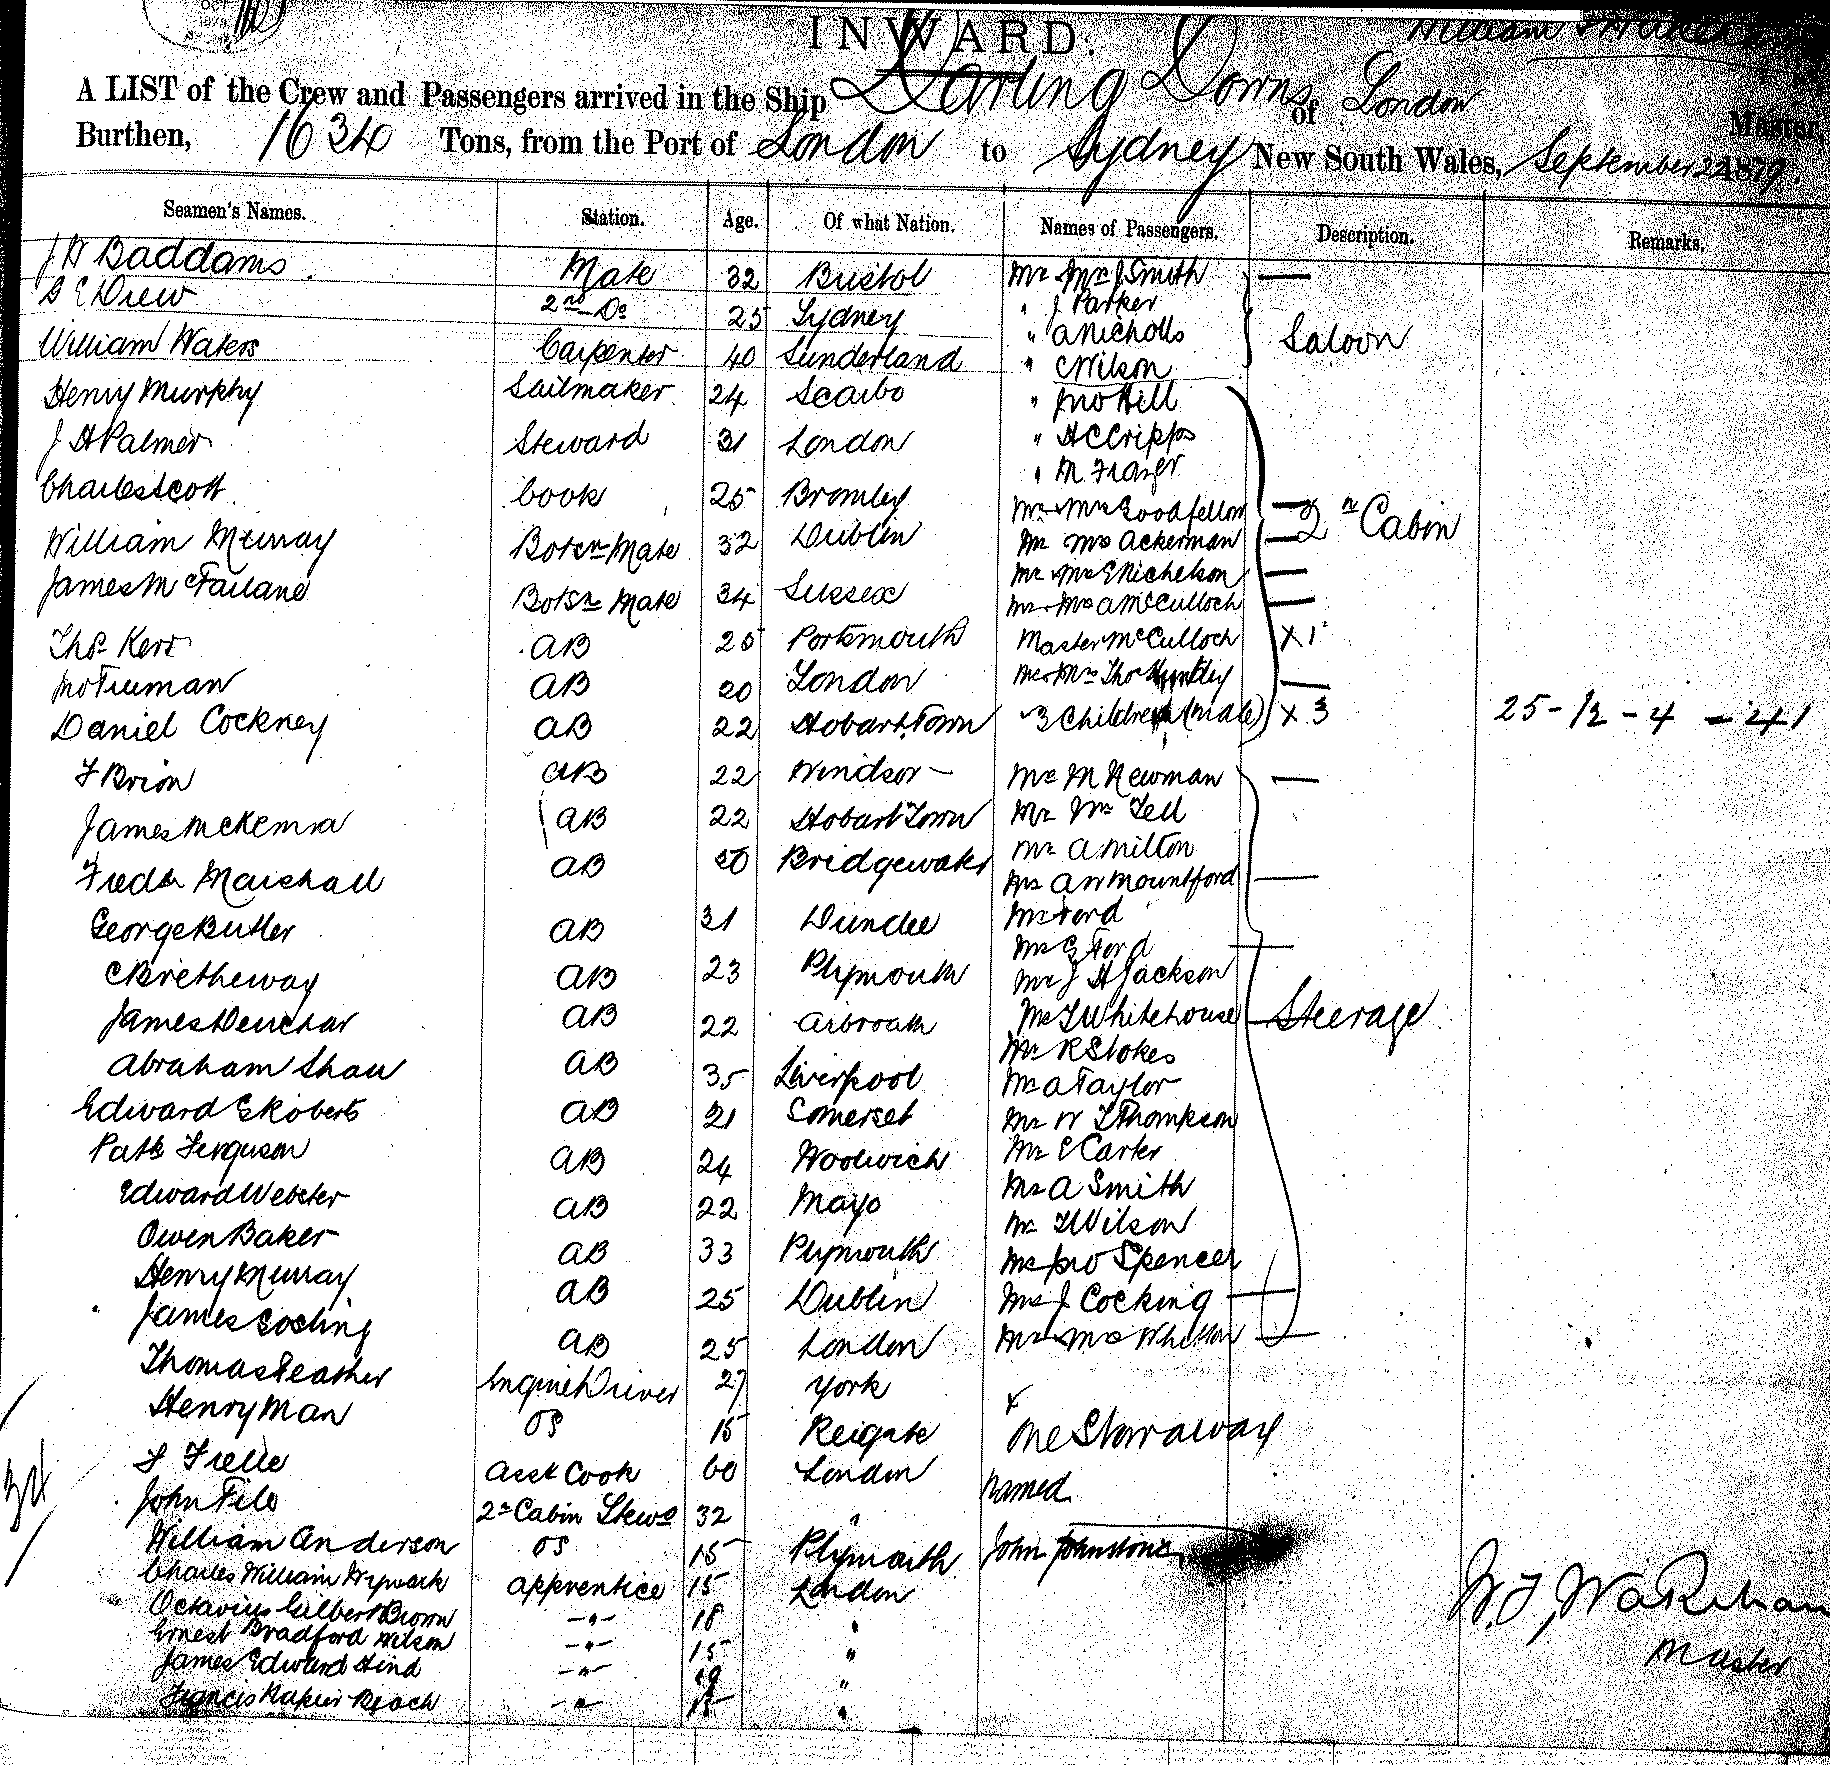 INWARD.
A LIST of the Crew and Passengers arrived in the Ship Darling Downs of London
Burthen, 1634 Tons, from the Port of London to Sydney New South Wales, September 1879.
Master,
Seamen's Names. Station. Age. Of what Nation. Names of Passengers. Description. Remarks.
J W Baddams Mate 32 Bristol Mr Mrs J Smith —
G E Drew 2nd Do 25 Sydney " J Parker
William Waters Carpenter 40 Sunderland " A Nicholls Saloon
" C Wilson
Henry Murphy Sailmaker 24 Scarbo " Jno Hill
J H Palmer Steward 31 London " H C Cripps
" M Fraser
Charles Scott Cook 25 Bromley Mr Mrs Goodfellow —
William Murray Botsn Mate 32 Dublin Mr Mrs Ackerman — 2n Cabin
Mr Mrs E Nichelson —
James McFarlane Botsn Mate 34 Sussex Mr Mrs A McCulloch —
Thos Kerr AB 25 Portsmouth Master McCulloch X 1
Jno Truman AB 20 London Mr Mrs Thos —
Daniel Cockney AB 22 Hobart Town 3 Children (male) X 3 25 - 12 - 4 - 41
F Brion AB 22 Windsor Mr M Newman —
James McKenna AB 22 Hobart Town Mr Wm Tell
Fredk Marshall AB Bridgewater Mr A Milton
Mrs A W Mountford —
George Butler AB 31 Dundee Mr Ford
Mrs G Ford
C Bretheway AB 23 Plymouth Mr J H Jackson
James Deuchar AB 22 Arbroath Mrs T Whitehouse Steerage
Abraham Shaw AB 35 Liverpool Mr R Stokes
Mr A Taylor
Edward G Roberts AB 21 Somerset Mr W T Thompson
Patk Ferguson AB 24 Woolwich Mr E Carter
Edward Webster AB 22 Mayo Mr A Smith
Owen Baker AB 33 Plymouth Mr T Wilson
Mr Jno Spencer
Henry Murray AB 25 Dublin Mrs J Cocking
James Gosling AB 25 London Mr Mrs Whetton —
Thomas Leather Engine Driver 27 York
Henry Man OS 15 Reigate One Stowaway
F Frelle Asst Cook 60 London named
John File 2n Cabin Stewd 32 "
William Anderson OS 15 Plymouth John Johnstone
Charles William Apprentice 15 London
Octavius Gilbert Brown -"- 18 "
Ernest Bradford Wilson -"- 15 "
James Edward Hind -"- "
Francis Napier Beach -"- "
W. F. Wakeham
Master